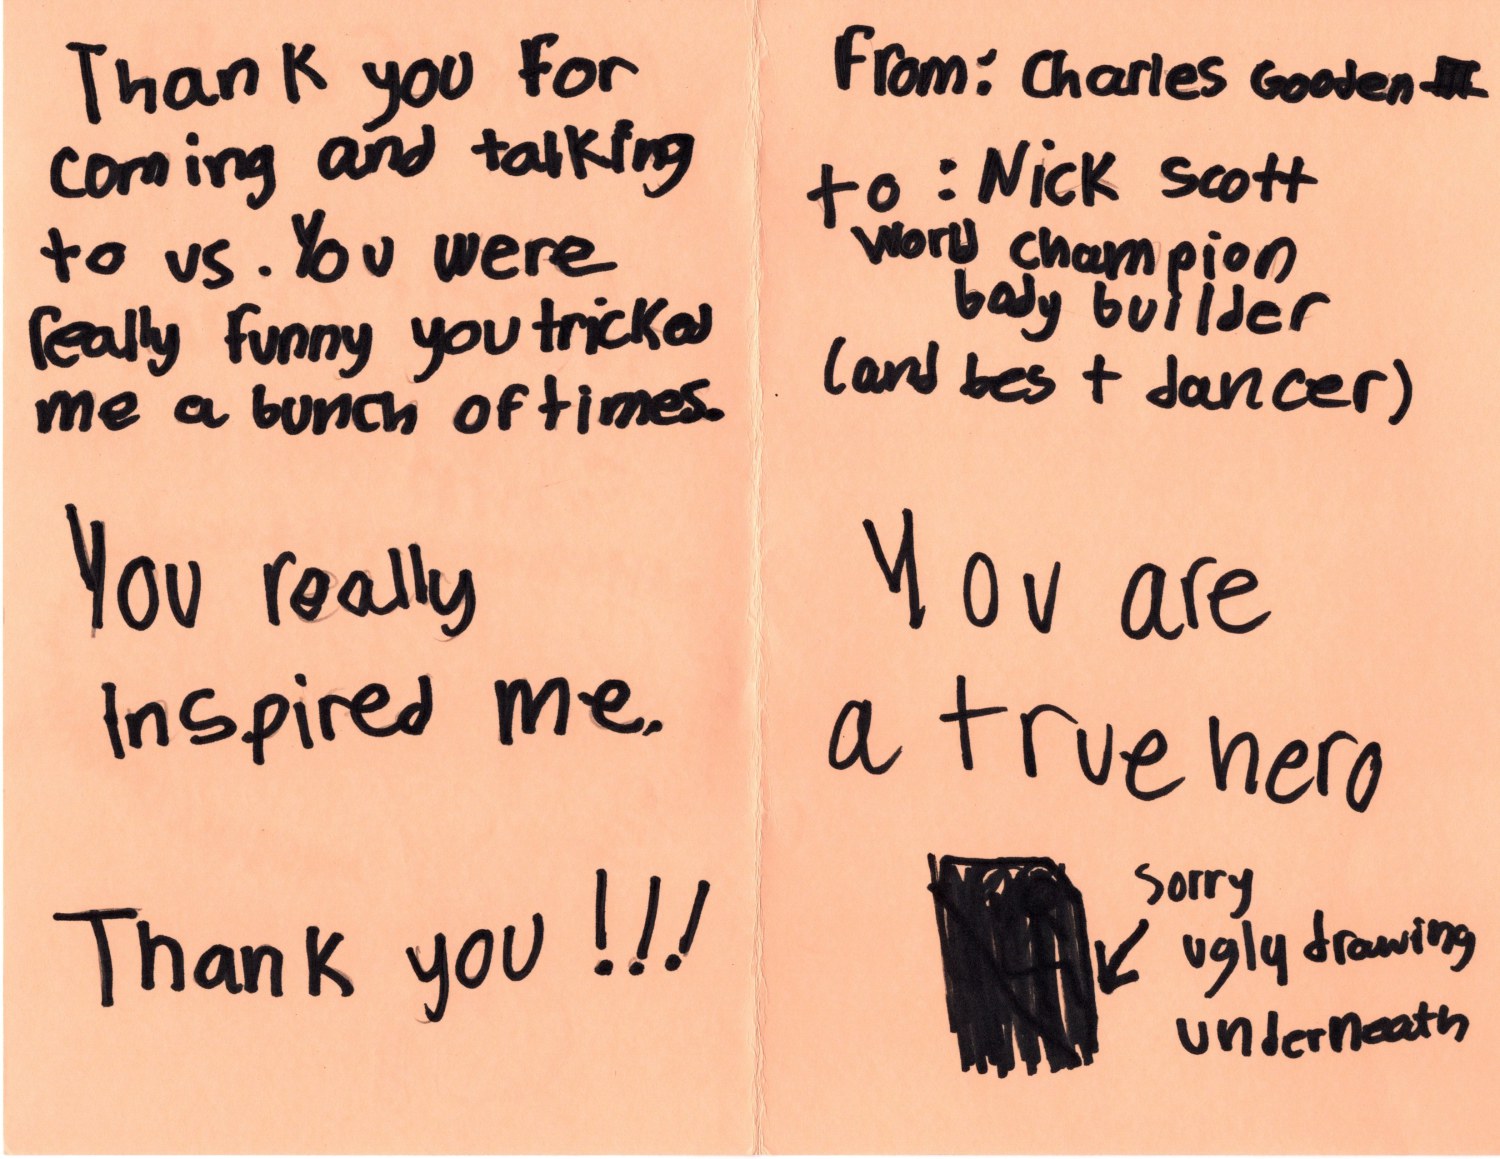 Thank you for
coming and talking
to us. You were
really funny you tricked
me a bunch of times.
You really
Inspired me.
Thank you !!!
From: Charles Gooden III
to: Nick Scott
World Champion
body builder
(and best dancer)
You are
a true hero
sorry
ugly drawing
underneath